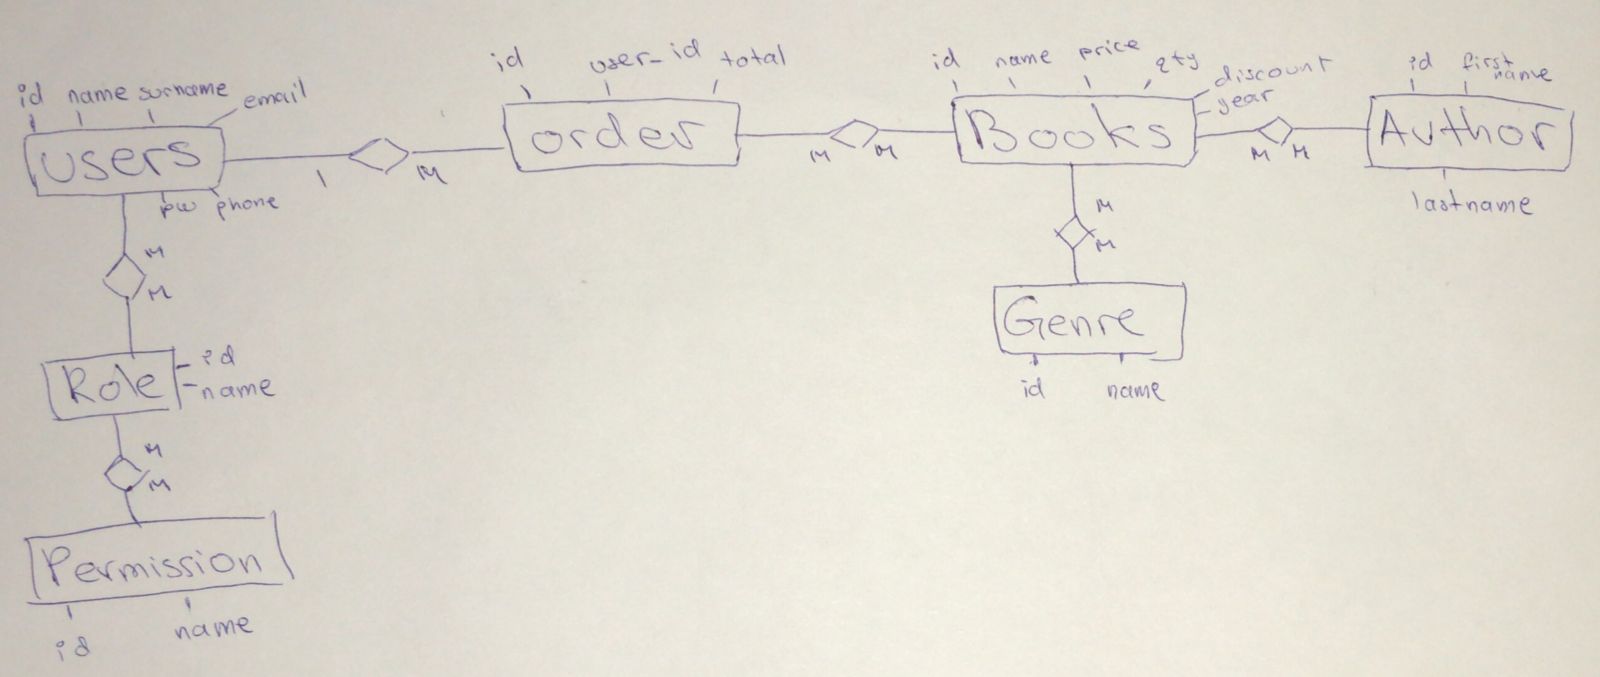 id name surname email
users
pw phone
1 M
id user_id total
order
M M
id name price qty discount
year
Books
M M
id first
name
Author
lastname
M
M
Genre
id name
M
M
Role
id
name
M
M
Permission
id name